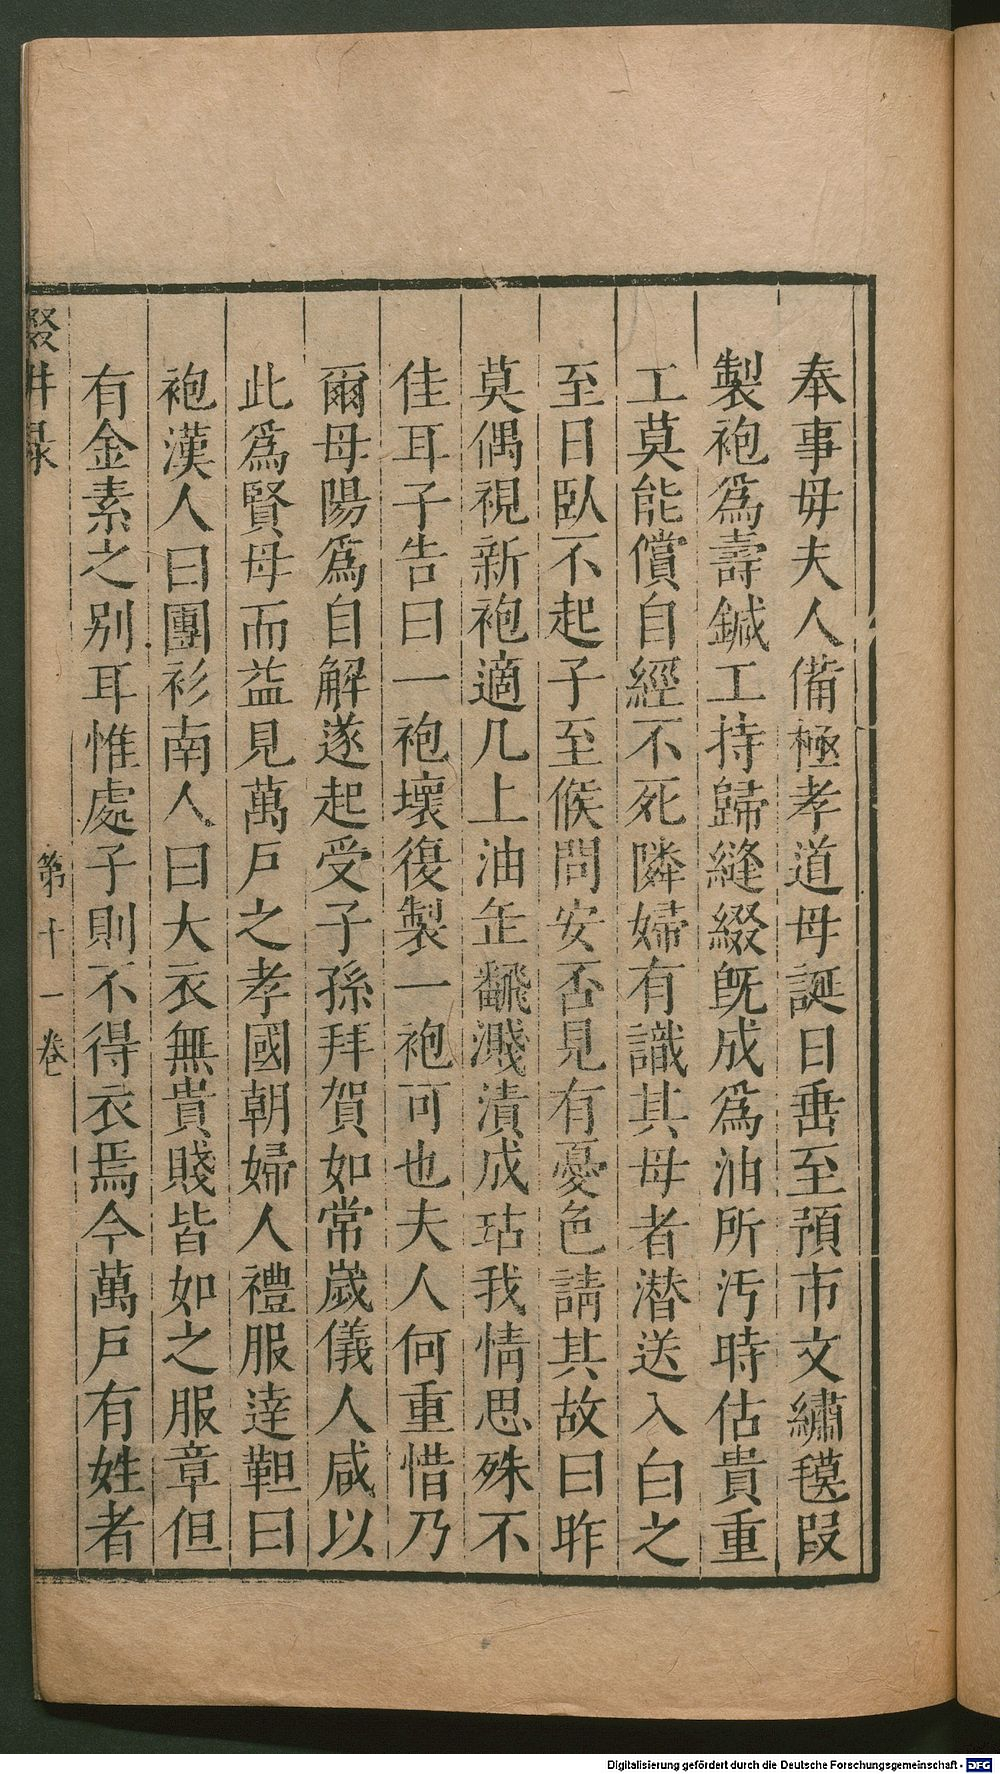 奉事母夫人備極孝道母誕日垂至預市文繡氁叚
製袍爲壽鍼工持歸縫綴旣成爲油所汚時估貴重
工莫能償自經不死隣婦有識其母者潛送入白之
至日臥不起子至候問安否見有憂色請其故曰昨
莫偶視新袍適几上油缶翻濺漬成玷我情思殊不
佳耳子告曰一袍壞復製一袍可也夫人何重惜乃
爾母陽爲自解遂起受子孫拜賀如常歲儀人咸以
此爲賢母而益見萬戶之孝國朝婦人禮服達靼曰
袍漢人曰團衫南人曰大衣無貴賤皆如之服章但
有金素之別耳惟處子則不得衣焉今萬戶有姓者
輟畊録 第十一卷
Digitalisierung gefördert durch die Deutsche Forschungsgemeinschaft - DFG